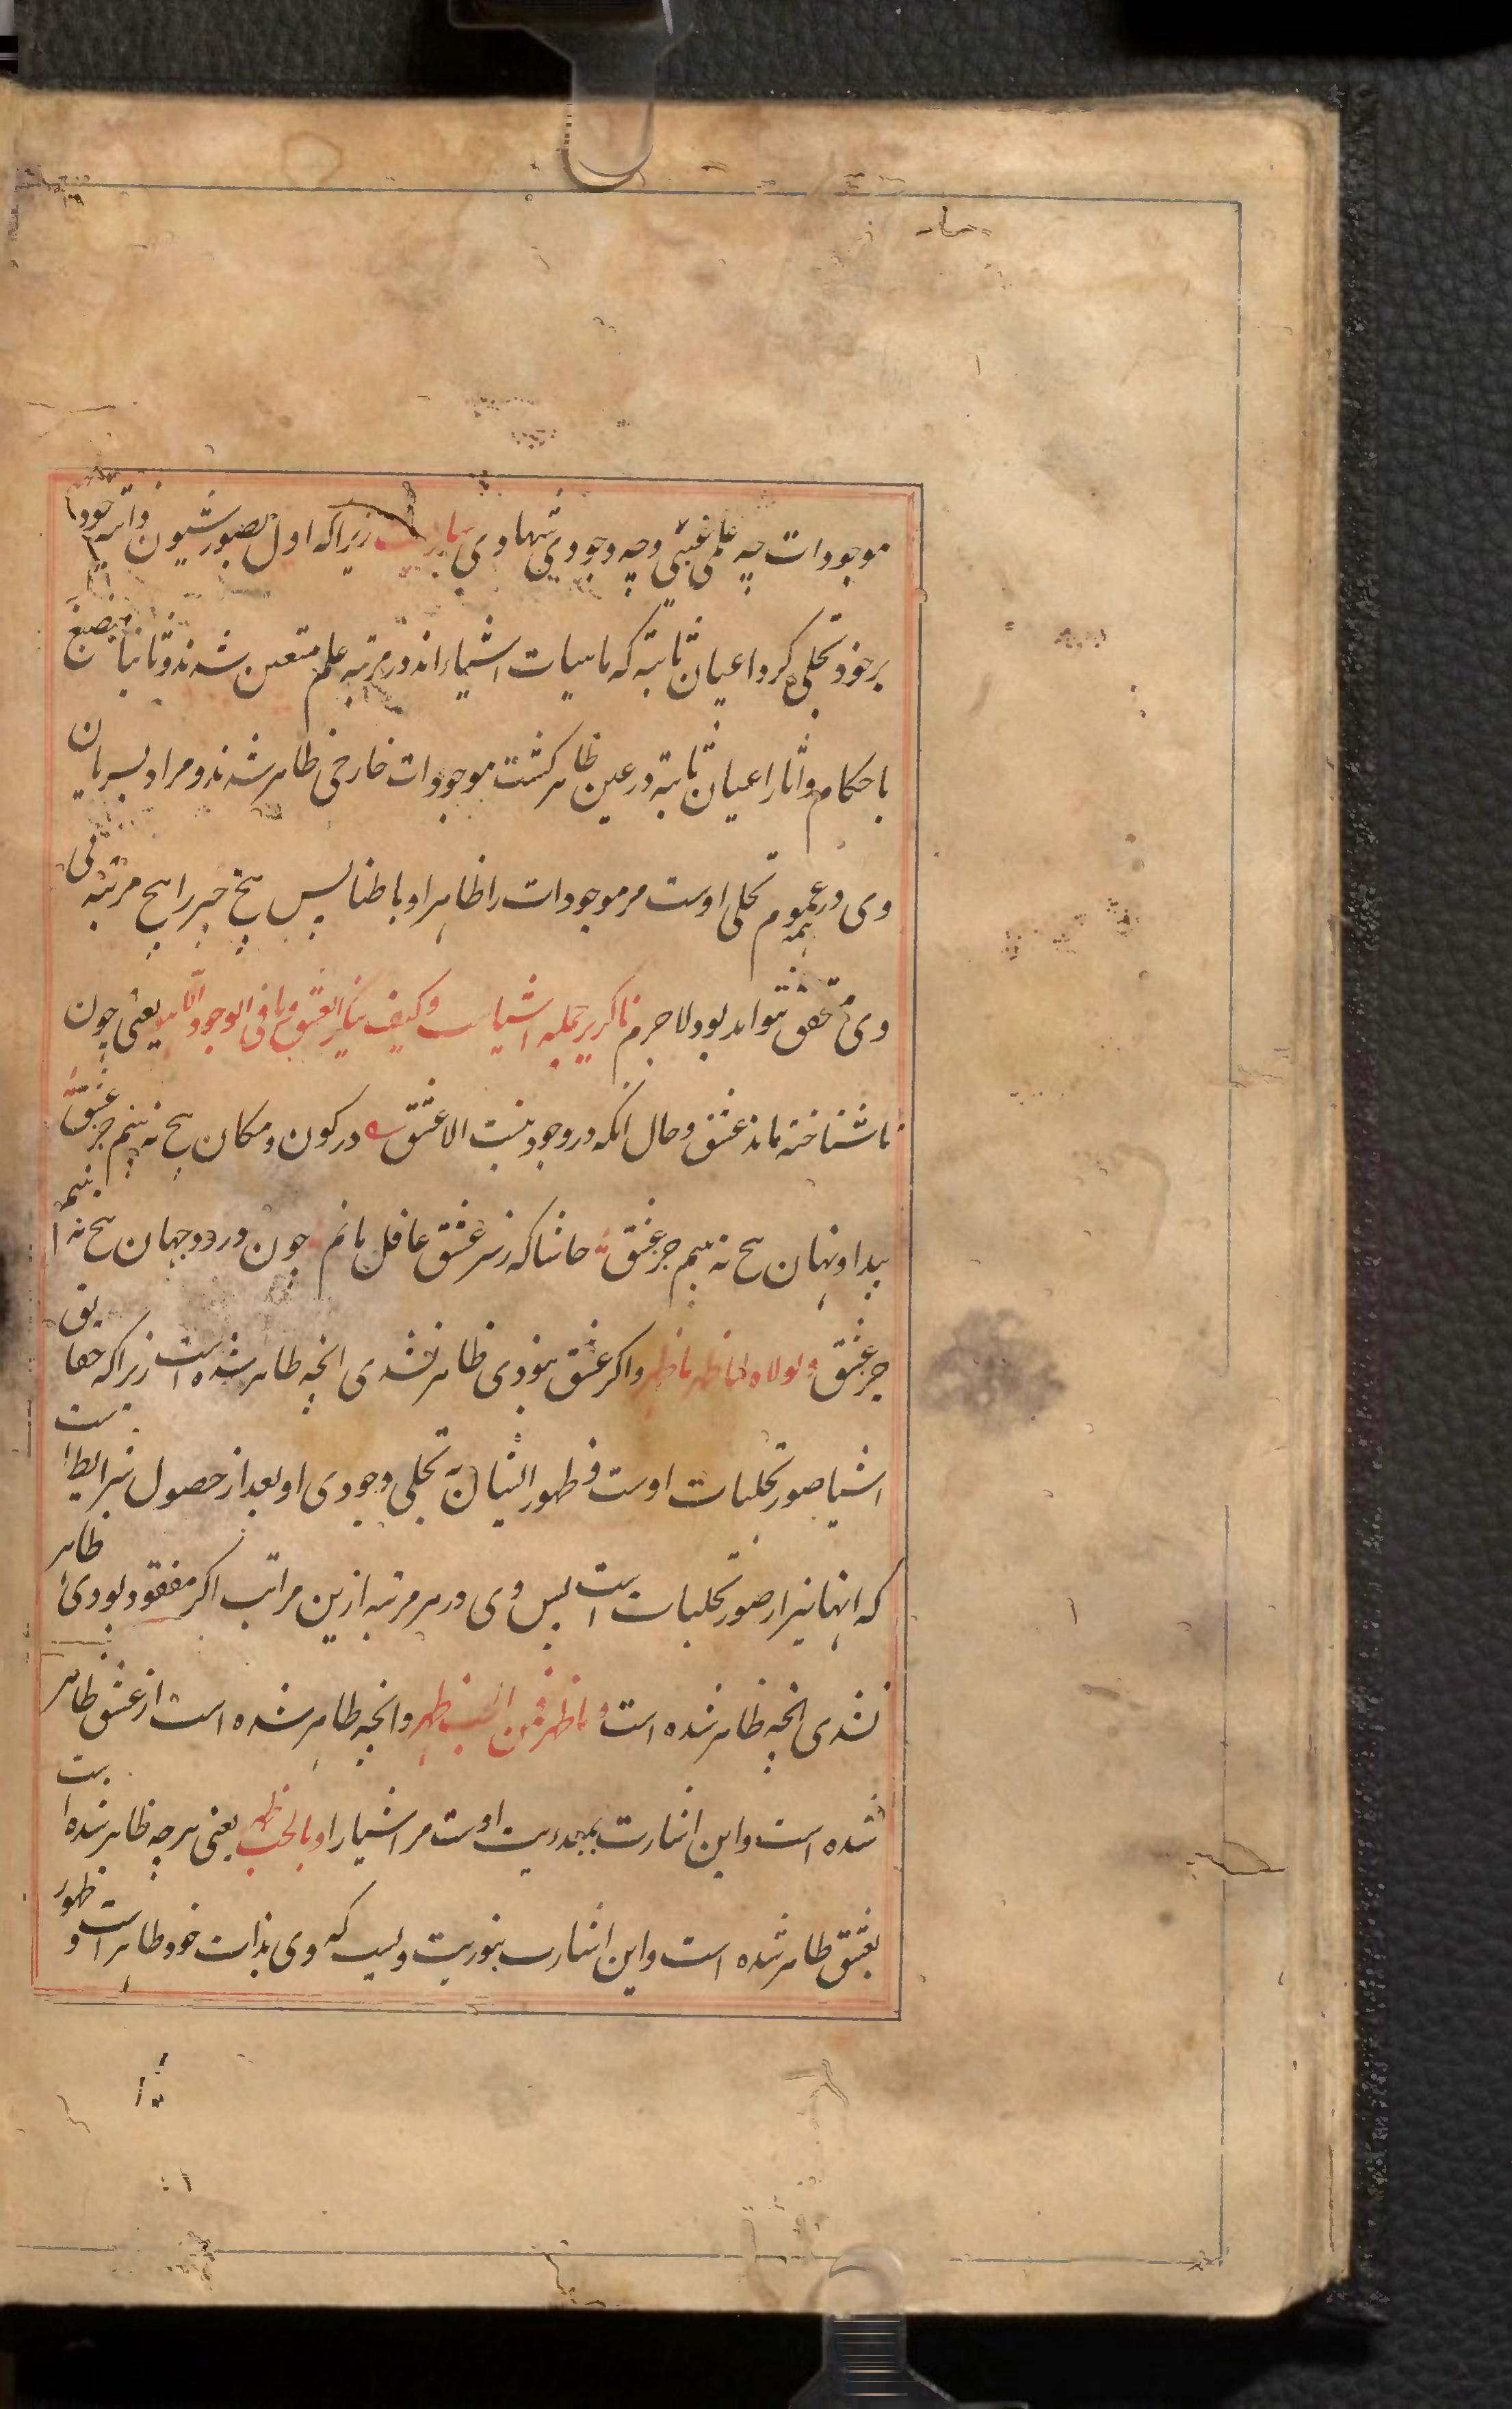 موجودات چه علمی غیبی وچه وجودی شهادی ساریست زیراکه اول بصور شیون ذاتیه خود
برخود تجلی کرد اعیان ثابته که ماهیات اشیاء اند در مرتبه علم متعین شدند و ثانیا منصبغ
باحکام وآثار اعیان ثابته در عین ظاهر کشت موجودات خارجی ظاهر شدند و مراد بسریان
وی در همه عموم تجلی اوست مر موجودات را ظاهرا و باطنا پس هیچ چیز را هیچ مرتبه بی
وی تحقق نتواند بود لاجرم ناکزیر جمله اشیاست وکیف ینکر العشق وما فی الوجود الا هو یعنی چون
ناشناخته ماند عشق وحال آنکه در وجود نیست الا عشق در کون و مکان هیچ نه بینم جز عشق
پیدا و نهان هیچ نه بینم جز عشق حاشا که ز سر عشق غافل مانم چون در دو جهان هیچ نه بینم
جز عشق ولولاه لما ظهر ما ظهر واکر عشق نبودی ظاهر نشدی انچه ظاهر شده است زیراکه حقایق
اشیا صور تجلیات اوست و ظهور ایشان به تجلی وجودی او بعد از حصول شرایط است
که انها نیز از صور تجلیات است پس وی در هر مرتبه ازین مراتب اکر مفقود بودی ظاهر
نشدی انچه ظاهر شده است وما ظهر فمن الحب ظهر وانچه ظاهر شده است از عشق ظاهر
شده است واین اشارت بمبدءیت اوست مر اشیا را وبالحب ظهر یعنی هرچه ظاهر شده است
بعشق ظاهر شده است واین اشارت بنوریت ویست که وی بذات خود ظاهر است و ظهور